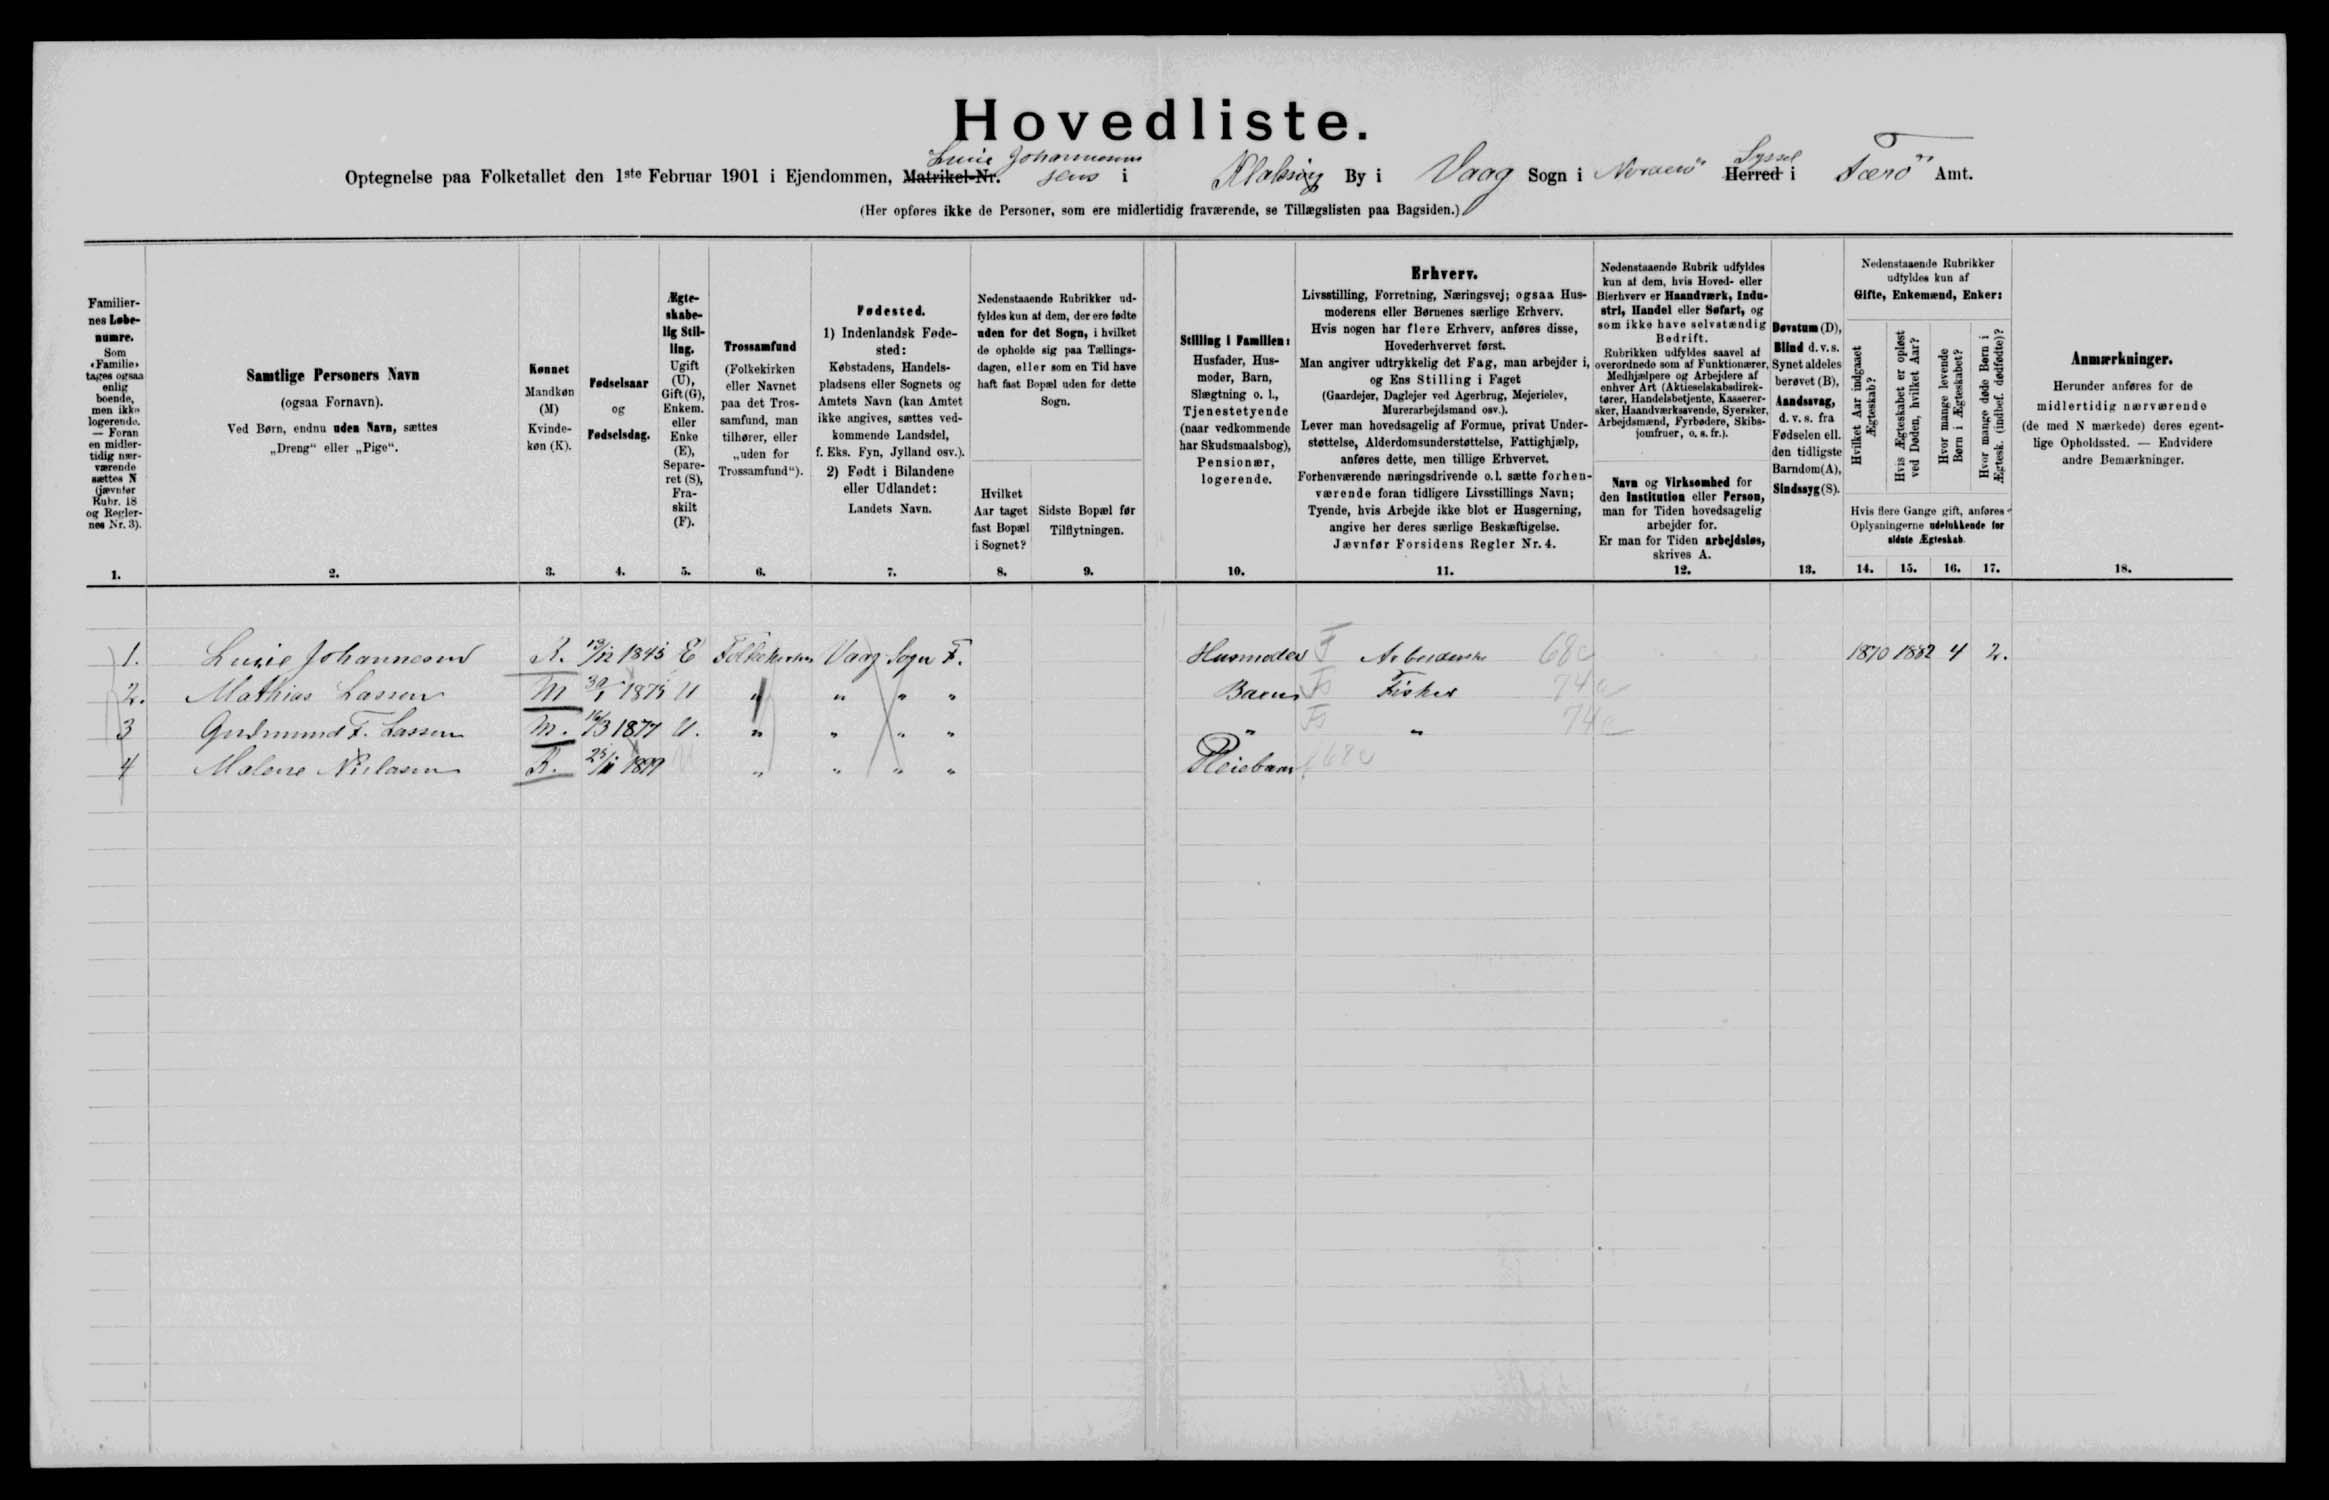 Hovedliste.
Lucie Johannesens
Optegnelse paa Folketallet den 1ste Februar 1901 i Ejendommen, Matrikel-Nr. Hus i Klaksvig By i Vaag Sogn i Norderö Herred Syssel i Færö Amt.
(Her opføres ikke de Personer, som ere midlertidig fraværende, se Tillægslisten paa Bagsiden.)
Familier-
nes Løbe-
numre.
Som
«Familie»
tages ogsaa
enlig
boende,
men ikke
logerende.
— Foran
en midler-
tidig nær-
værende
sættes N
(jævnfør
Rubr. 18
og Regler-
nes Nr. 3).
1.
Samtlige Personers Navn
(ogsaa Fornavn).
Ved Børn, endnu uden Navn, sættes
„Dreng“ eller „Pige“.
2.
Kønnet
Mandkøn
(M)
Kvinde-
køn (K).
3.
Fødselsaar
og
Fødselsdag.
4.
Ægte-
skabe-
lig Stil-
ling.
Ugift
(U),
Gift (G),
Enkem.
eller
Enke
(E),
Separe-
ret (S),
Fra-
skilt
(F).
5.
Trossamfund
(Folkekirken
eller Navnet
paa det Tros-
samfund, man
tilhører, eller
„uden for
Trossamfund“).
6.
Fødested.
1) Indenlandsk Føde-
sted:
Købstadens, Handels-
pladsens eller Sognets og
Amtets Navn (kan Amtet
ikke angives, sættes ved-
kommende Landsdel,
f. Eks. Fyn, Jylland osv.).
2) Født i Bilandene
eller Udlandet:
Landets Navn.
7.
Nedenstaaende Rubrikker ud-
fyldes kun af dem, der ere fødte
uden for det Sogn, i hvilket
de opholde sig paa Tællings-
dagen, eller som en Tid have
haft fast Bopæl uden for dette
Sogn.
Hvilket
Aar taget
fast Bopæl
i Sognet?
8.
Sidste Bopæl før
Tilflytningen.
9.
Stilling i Familien:
Husfader, Hus-
moder, Barn,
Slægtning o. l.,
Tjenestetyende
(naar vedkommende
har Skudsmaalsbog),
Pensionær,
logerende.
10.
Erhverv.
Livsstilling, Forretning, Næringsvej; ogsaa Hus-
moderens eller Børnenes særlige Erhverv.
Hvis nogen har flere Erhverv, anføres disse,
Hovederhvervet først.
Man angiver udtrykkelig det Fag, man arbejder i,
og Ens Stilling i Faget
(Gaardejer, Daglejer ved Agerbrug, Mejerielev,
Murerarbejdsmand osv.).
Lever man hovedsagelig af Formue, privat Under-
støttelse, Alderdomsunderstøttelse, Fattighjælp,
anføres dette, men tillige Erhvervet.
Forhenværende næringsdrivende o. l. sætte forhen-
værende foran tidligere Livsstillings Navn;
Tyende, hvis Arbejde ikke blot er Husgerning,
angive her deres særlige Beskæftigelse.
Jævnfør Forsidens Regler Nr. 4.
11.
Nedenstaaende Rubrik udfyldes
kun af dem, hvis Hoved- eller
Bierhverv er Haandværk, Indu-
stri, Handel eller Søfart, og
som ikke have selvstændig
Bedrift.
Rubrikken udfyldes saavel af
overordnede som af Funktionærer,
Medhjælpere og Arbejdere af
enhver Art (Aktieselskabsdirek-
tører, Handelsbetjente, Kasserer-
sker, Haandværkssvende, Syersker,
Arbejdsmænd, Fyrbødere, Skibs-
jomfruer, o. s. fr.).
Navn og Virksomhed for
den Institution eller Person,
man for Tiden hovedsagelig
arbejder for.
Er man for Tiden arbejdsløs,
skrives A.
12.
Døvstum (D),
Blind d. v. s.
Synet aldeles
berøvet (B),
Aandssvag,
d. v. s. fra
Fødselen ell.
den tidligste
Barndom (A),
Sindssyg (S).
13.
Nedenstaaende Rubrikker
udfyldes kun af
Gifte, Enkemænd, Enker:
Hvilket Aar indgaaet
Ægteskab?
Hvis Ægteskabet er opløst
ved Døden, hvilket Aar?
Hvor mange levende
Børn i Ægteskabet?
Hvor mange døde Børn i
Ægtesk. (indbef. dødfødte)?
Hvis flere Gange gift, anføres
Oplysningerne udelukkende for
sidste Ægteskab.
14. 15. 16. 17.
Anmærkninger.
Herunder anføres for de
midlertidig nærværende
(de med N mærkede) deres egent-
lige Opholdssted. — Endvidere
andre Bemærkninger.
18.
1. Lucie Johannesen K. 13/12 1845 E Folkekirken Vaag Sogn F. Husmoder F Arbeiderske 68c 1870 1882 4 2.
2. Mathias Lassen M 30/1 1875 U " " " " Barn Fs Fisker 74a
3 Gudmund F. Lassen M. 16/3 1877 U. " " " " " Fs " 74a
4 Malene Nielasen K. 25/11 1899 U " " " " Pleiebarn f 68c